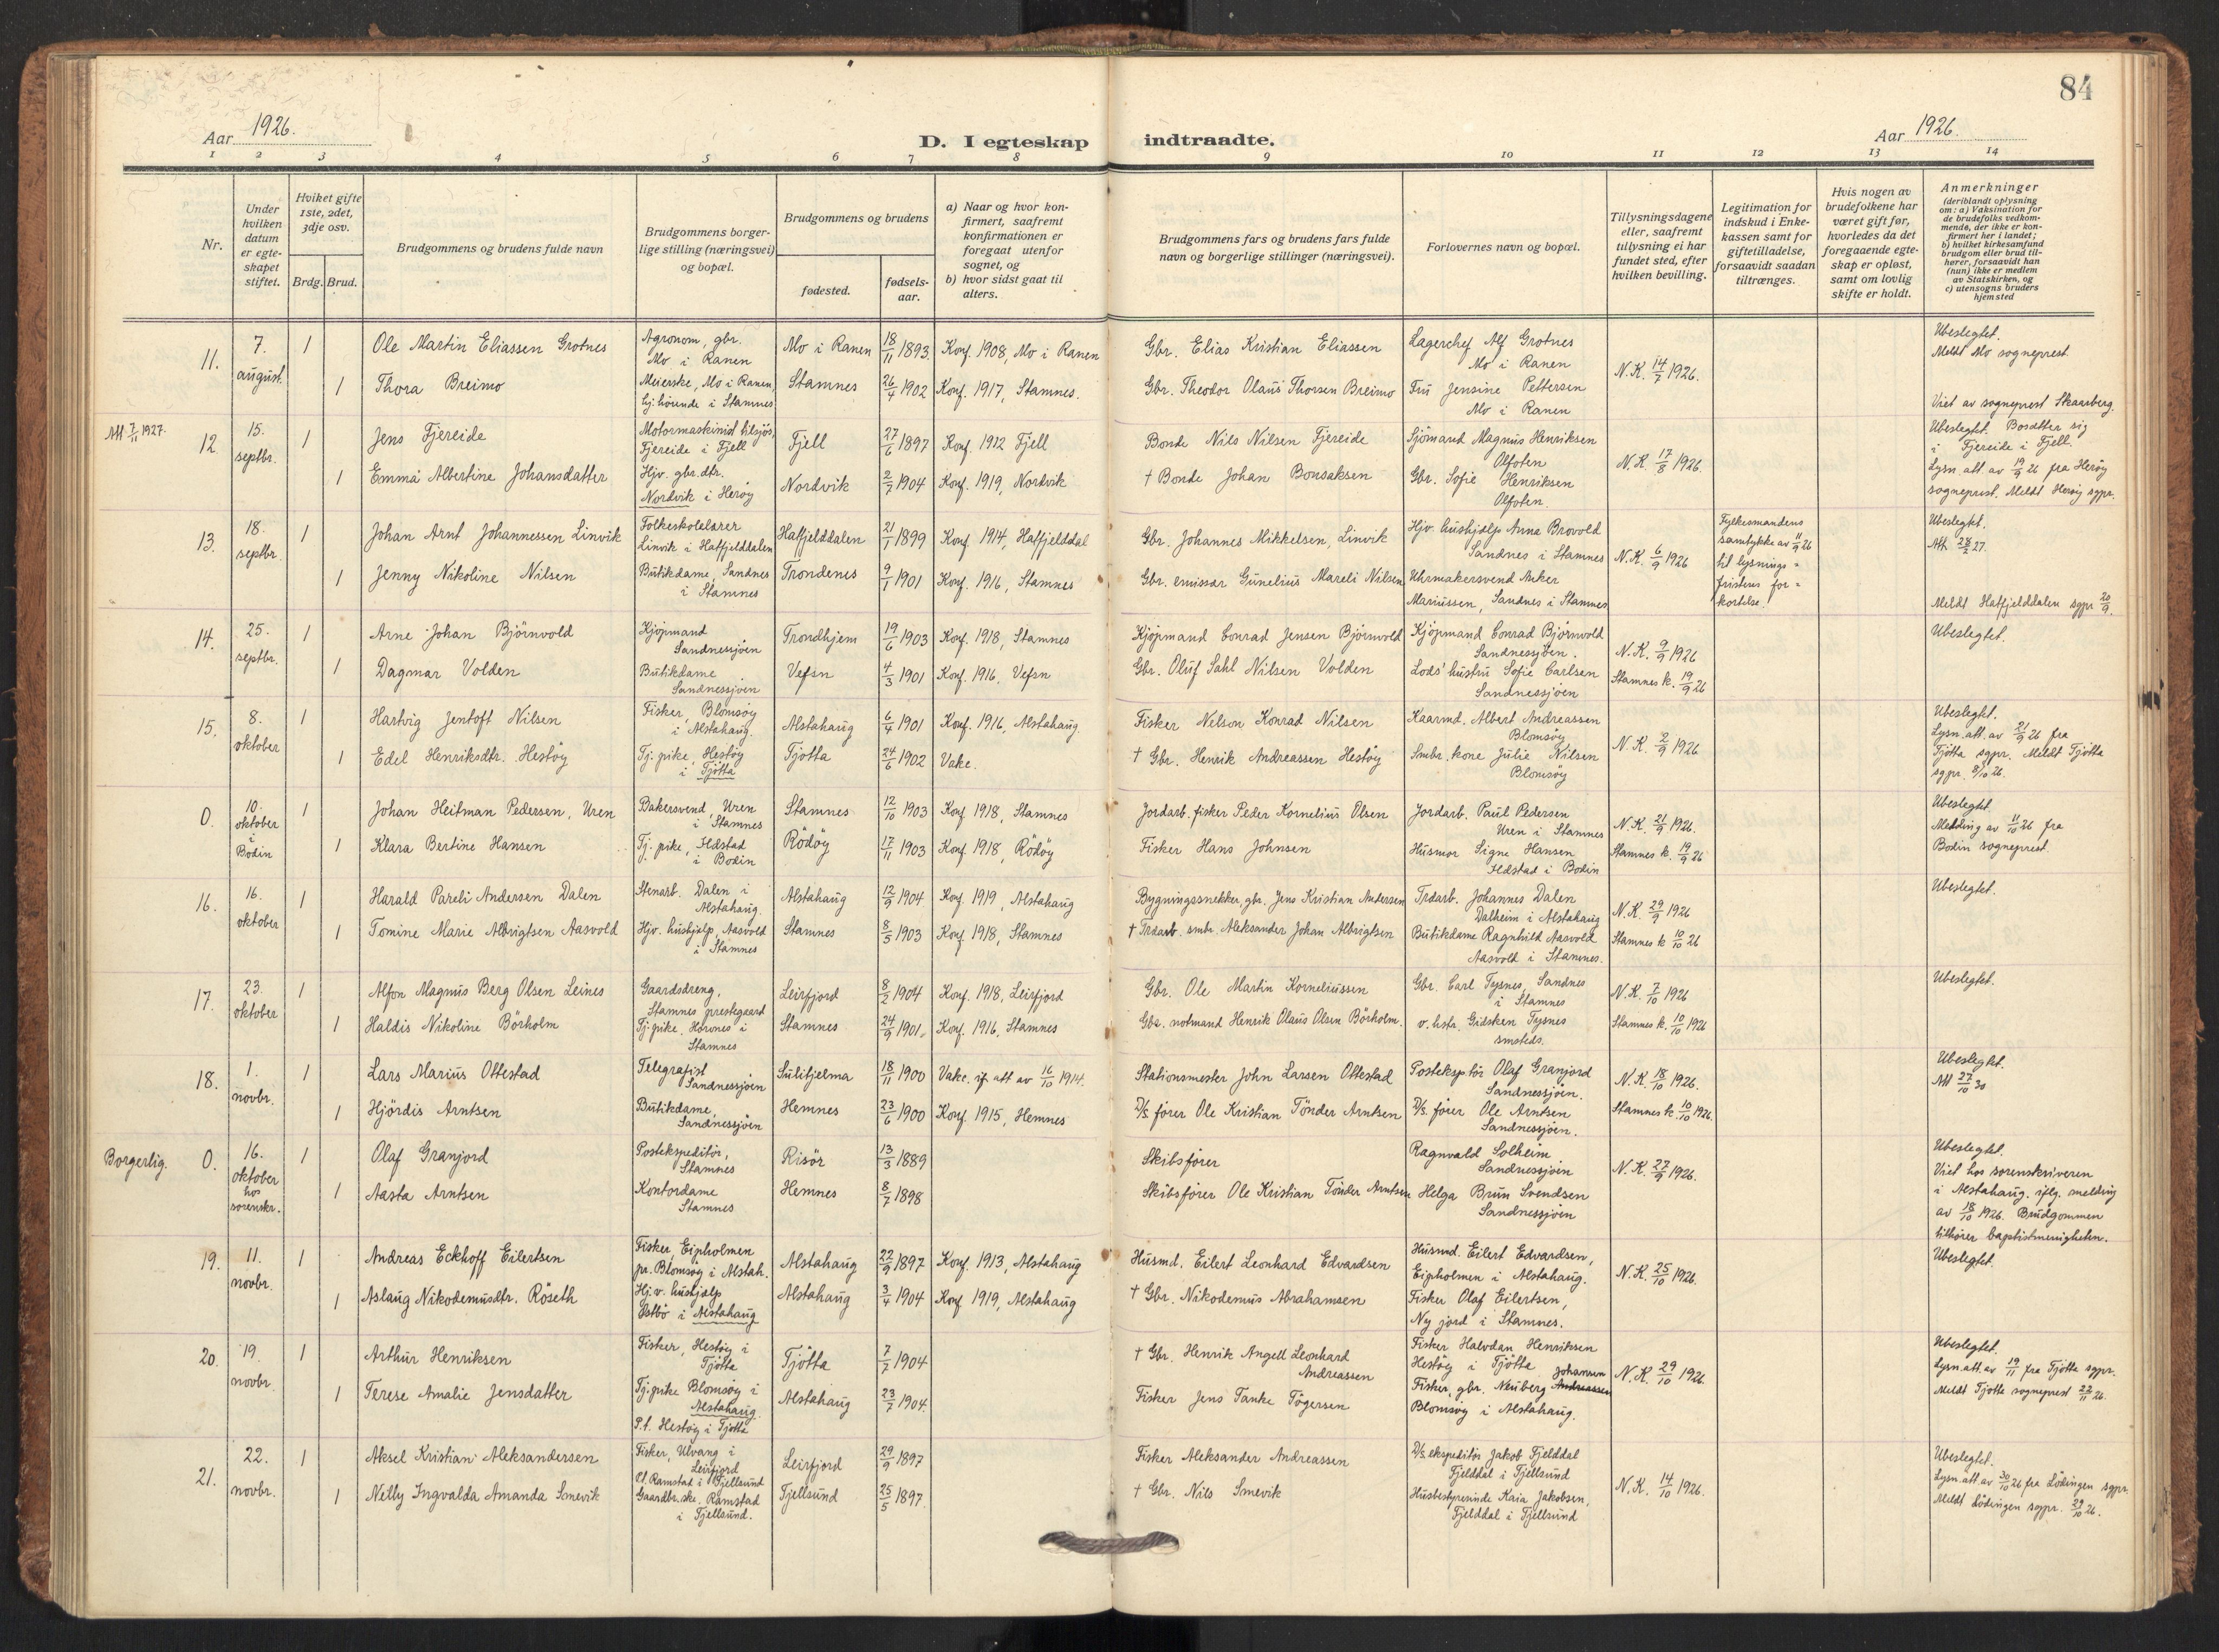 84
Aar 1926.
D. I egteskap indtraadte.
Aar 1926.
1 2 3 4 5 6 7 8 9 10 11 12 13 14
Nr.
Under hvilken datum er egteskapet stiftet.
Hviket gifte 1ste, 2det, 3dje osv.
Brdg. Brud.
Brudgommens og brudens fulde navn
Brudgommens borgerlige stilling (næringsvei) og bopæl.
Brudgommens og brudens
fødested.
fødselsaar.
a) Naar og hvor konfirmert, saafremt konfirmationen er foregaat utenfor sognet, og
b) hvor sidst gaat til alters.
Brudgommens fars og brudens fars fulde navn og borgerlige stillinger (næringsvei).
Forlovernes navn og bopæl.
Tillysningsdagene eller, saafremt tillysning ei har fundet sted, efter hvilken bevilling.
Legitimation for indskud i Enkekassen samt for giftetilladelse, forsaavidt saadan tiltrænges.
Hvis nogen av brudefolkene har været gift før, hvorledes da det foregaaende egteskap er opløst, samt om lovlig skifte er holdt.
Anmerkninger
(deriblandt oplysning om: a) Vaksination for de brudefolks vedkommende, der ikke er konfirmert her i landet;
b) hvilket kirkesamfund brudgom eller brud tilhører, forsaavidt han (hun) ikke er medlem av Statskirken, og
c) utensogns bruders hjemsted
11. 7. august. 1 Ole Martin Eliassen Grotnes Agronom, gbr. Mo i Ranen Mo i Ranen 18/11 1893. Konf. 1908, Mo i Ranen Gbr. Elias Kristian Eliassen Lagerchef Alf Grotnes Mo i Ranen N.K. 14/7 1926. Ubeslegtet. Meldt Mo sogneprest.
1 Thora Breimo Meierske, Mo i Ranen, hj.hörende i Stamnes Stamnes 26/4 1902 Konf. 1917, Stamnes. Gbr. Theodor Olaus Thorsen Breimo Fru Jensine Pettersen Mo i Ranen Viet av sogneprest Skaarberg.
Att 7/11 1927.
12 15. septbr. 1 Jens Fjereide Motormaskinist tilsjøs, Fjereide i Fjell Fjell 27/6 1897 Konf. 1912 Fjell Bonde Nils Nilsen Fjereide Sjömand Magnus Henriksen Olfoten N.K. 17/8 1926. Ubeslegtet. Bosætter sig i Fjereide i Fjell.
1 Emma Albertine Johansdatter Hjv. gbr.dtr. Nordvik i Heröy Nordvik 2/7 1904 Konf. 1919, Nordvik † Bonde Johan Bonsaksen Gbr. Sofie Henriksen Olfoten. Lysn.att av 19/9 26 fra Heröy sogneprest. Meldt Heröy sgpr.
13. 18. septbr. 1 Johan Arnt Johannessen Linvik Folkeskolelærer Linvik i Hatfjelddalen Hatfjelddalen 21/1 1899 Konf. 1914, Hatfjelddal Gbr. Johannes Mikkelsen, Linvik Hjv. hushjælp Anna Brovold Sandnes i Stamnes N.K. 6/9 1926 Fylkesmandens samtykke av 11/9 26 til lysningsfristens forkortelse. Ubeslegtet. Att 28/2 27.
1 Jenny Nikoline Nilsen Butikdame, Sandnes i Stamnes Trondenes 9/1 1901 Konf. 1916, Stamnes Gbr. emissær Gunelius Mareli Nilsen Uhrmakersvend Anker Mariussen, Sandnes i Stamnes Meldt Hatfjelddalen sgpr 20/9.
14. 25. septbr. 1 Arne Johan Björnvold Kjöpmand Sandnessjöen Trondhjem 19/6 1903 Konf. 1918, Stamnes Kjöpmand Conrad Jensen Björnvold Kjöpmand Conrad Björnvold Sandnessjöen. N.K. 9/9 1926 Ubeslegtet.
1 Dagmar Volden Butikdame Sandnessjöen Vefsn 4/3 1901 Konf. 1916, Vefsn Gbr. Oluf Sahl Nilsen Volden Lods' hustru Sofie Carlsen Sandnessjöen Stamnes k. 19/9 26
15. 8. oktober 1 Hartvig Jentoft Nilsen Fisker, Blomsöy i Alstahaug. Alstahaug 6/4 1901 Konf. 1916, Alstahaug. Fisker Nelson Konrad Nilsen Kaarmd. Albert Andreassen Blomsöy N.K. 2/9 1926 Ubeslegtet. Lysn.att. av 21/9 26 fra
1 Edel Henriksdtr. Hestöy Tj.pike, Hestöy i Tjötta Tjötta 24/6 1902 Vake. † Gbr. Henrik Andreassen Hestöy Smbr. kone Julie Nilsen Blomsöy Tjötta sgpr. Meldt Tjötta sgpr. 8/10 26.
0. 10. oktober i Bodin 1 Johan Heitman Pedersen, Uren Bakersvend, Uren i Stamnes Stamnes 12/10 1903 Konf. 1918, Stamnes Jordarb. fisker Peder Kornelius Olsen Jordarb. Paul Pedersen Uren i Stamnes N.K. 21/9 1926. Ubeslegtet. Melding av 11/10 26 fra Bodin sogneprest.
1 Klara Bertine Hansen Tj.pike, Ildstad i Bodin Rödöy 17/11 1903 Konf. 1918, Rödöy Fisker Hans Johnsen Husmor Signe Hansen Ildstad i Bodin Stamnes k. 19/9 26
16. 16. oktober 1 Harald Pareli Andersen Dalen Stenarb. Dalen i Alstahaug. Alstahaug 12/9 1904 Konf. 1919, Alstahaug Bygningssnekker, gbr. Jens Kristian Andersen Træarb. Johannes Dalen Dalheim i Alstahaug N.K. 29/9 1926 Ubeslegtet.
1 Tomine Marie Albrigtsen Aasvold Hjv. hushjælp, Aasvold i Stamnes Stamnes 8/5 1903 Konf. 1918, Stamnes † Træarb. smbr. Aleksander Johan Albrigtsen Butikdame Ragnhild Aasvold Aasvold i Stamnes. Stamnes k 10/10 26
17. 23. oktober 1 Alfon Magnus Berg Olsen Leines Gaardsdreng, Stamnes prestegaard Leirfjord 8/2 1904 Konf. 1918, Leirfjord Gbr. Ole Martin Korneliussen Gbr. Carl Tysnes, Sandnes i Stamnes N.K. 7/10 1926 Ubeslegtet.
1 Haldis Nikoline Börholm Tj.pike, Horvnes i Stamnes Stamnes 24/9 1901. Konf. 1916, Stamnes Gbr. notmand Henrik Olaus Olsen Börholm. v. hstr. Gidsken Tysnes smsteds. Stamnes k. 10/10 1926
18. 1. novbr. 1 Lars Marius Ottestad Telegrafist Sandnessjöen Sulitjelma 18/11 1900 Vakc. if att av 16/10 1914. Stationsmester John Larsen Ottestad Posteksp.tör Olaf Granjord Sandnessjöen. N.K. 18/10 1926. Ubeslegtet. Att 27/10 30
1 Hjördis Arntsen Butikdame, Sandnessjöen Hemnes 23/6 1900 Konf. 1915, Hemnes D/s. förer Ole Kristian Tönder Arntsen D/s. förer Ole Arntsen Sandnessjöen. Stamnes k. 10/10 1926.
Borgerlig. 0. 16. oktober hos sorenskr. 1 Olaf Granjord Postekspeditör, Stamnes Risör 13/3 1889 Skibsförer Ragnvald Solheim Sandnessjöen N.K. 27/9 1926. Ubeslegtet. Viet hos sorenskriveren
1 Aasta Arntsen Kontordame Stamnes Hemnes 8/7 1898 Skibsförer Ole Kristian Tönder Arntsen Helga Brun Svendsen Sandnessjöen i Alstahaug. iflg. melding av 18/10 1926. Brudgommen tilhörer baptistmenigheten.
19. 11. novbr. 1 Andreas Eckhoff Eilertsen Fisker, Eipholmen pr. Blomsöy i Alstah. Alstahaug 22/9 1897 Konf. 1913, Alstahaug Husmd. Eilert Leonhard Edvardsen Husmd. Eilert Edvardsen, Eipholmen i Alstahaug. N.K. 25/10 1926. Ubeslegtet.
1 Aslaug Nikodemusdtr. Röseth Hj.v. hushjælp Östbö i Alstahaug Alstahaug 3/4 1904 Konf. 1919, Alstahaug † Gbr. Nikodemus Abrahamsen Fisker Olaf Eilertsen, Ny jord i Stamnes.
20. 19. novbr. 1 Arthur Henriksen Fisker, Hestöy i Tjötta Tjötta 7/7 1904 † Gbr. Henrik Angell Leonhard Andreassen Fisker Halvdan Henriksen Hestöy i Tjötta N.K. 29/10 1926. Ubeslegtet. Lysn.att av 19/11 fra Tjötta sgpr.
1 Terese Amalie Jensdatter Tj.pike Blomsöy i Alstahaug. P.t. Hestöy i Tjötta Alstahaug 23/7 1904. Fisker Jens Tanke Tögersen Fisker, gbr. Neuberg Andreassen Johansen Blomsöy i Alstahaug. Meldt Tjötta sogneprest 22/11 26.
21. 22. novbr. 1 Aksel Kristian Aleksandersen Fisker, Ulvang i Leirfjord P.t. Ramstad i Fjellsund Leirfjord 29/9 1897 Fisker Aleksander Andreassen D/s. ekspeditör Jakob Fjelddal Fjelddal i Fjellsund N.K. 14/10 1926. Ubeslegtet. Lysn.att av 30/10 26 fra Lödingen sgpr.
1 Nilly Ingvalda Amanda Smevik Gaardbr.ske, Ramstad i Fjellsund. Fjellsund 25/5 1897. † Gbr. Nils Smevik Husbestyrerinde Kaia Jakobsen, Fjelddal i Fjellsund Meldt Lödingen sgpr. 29/10 26.